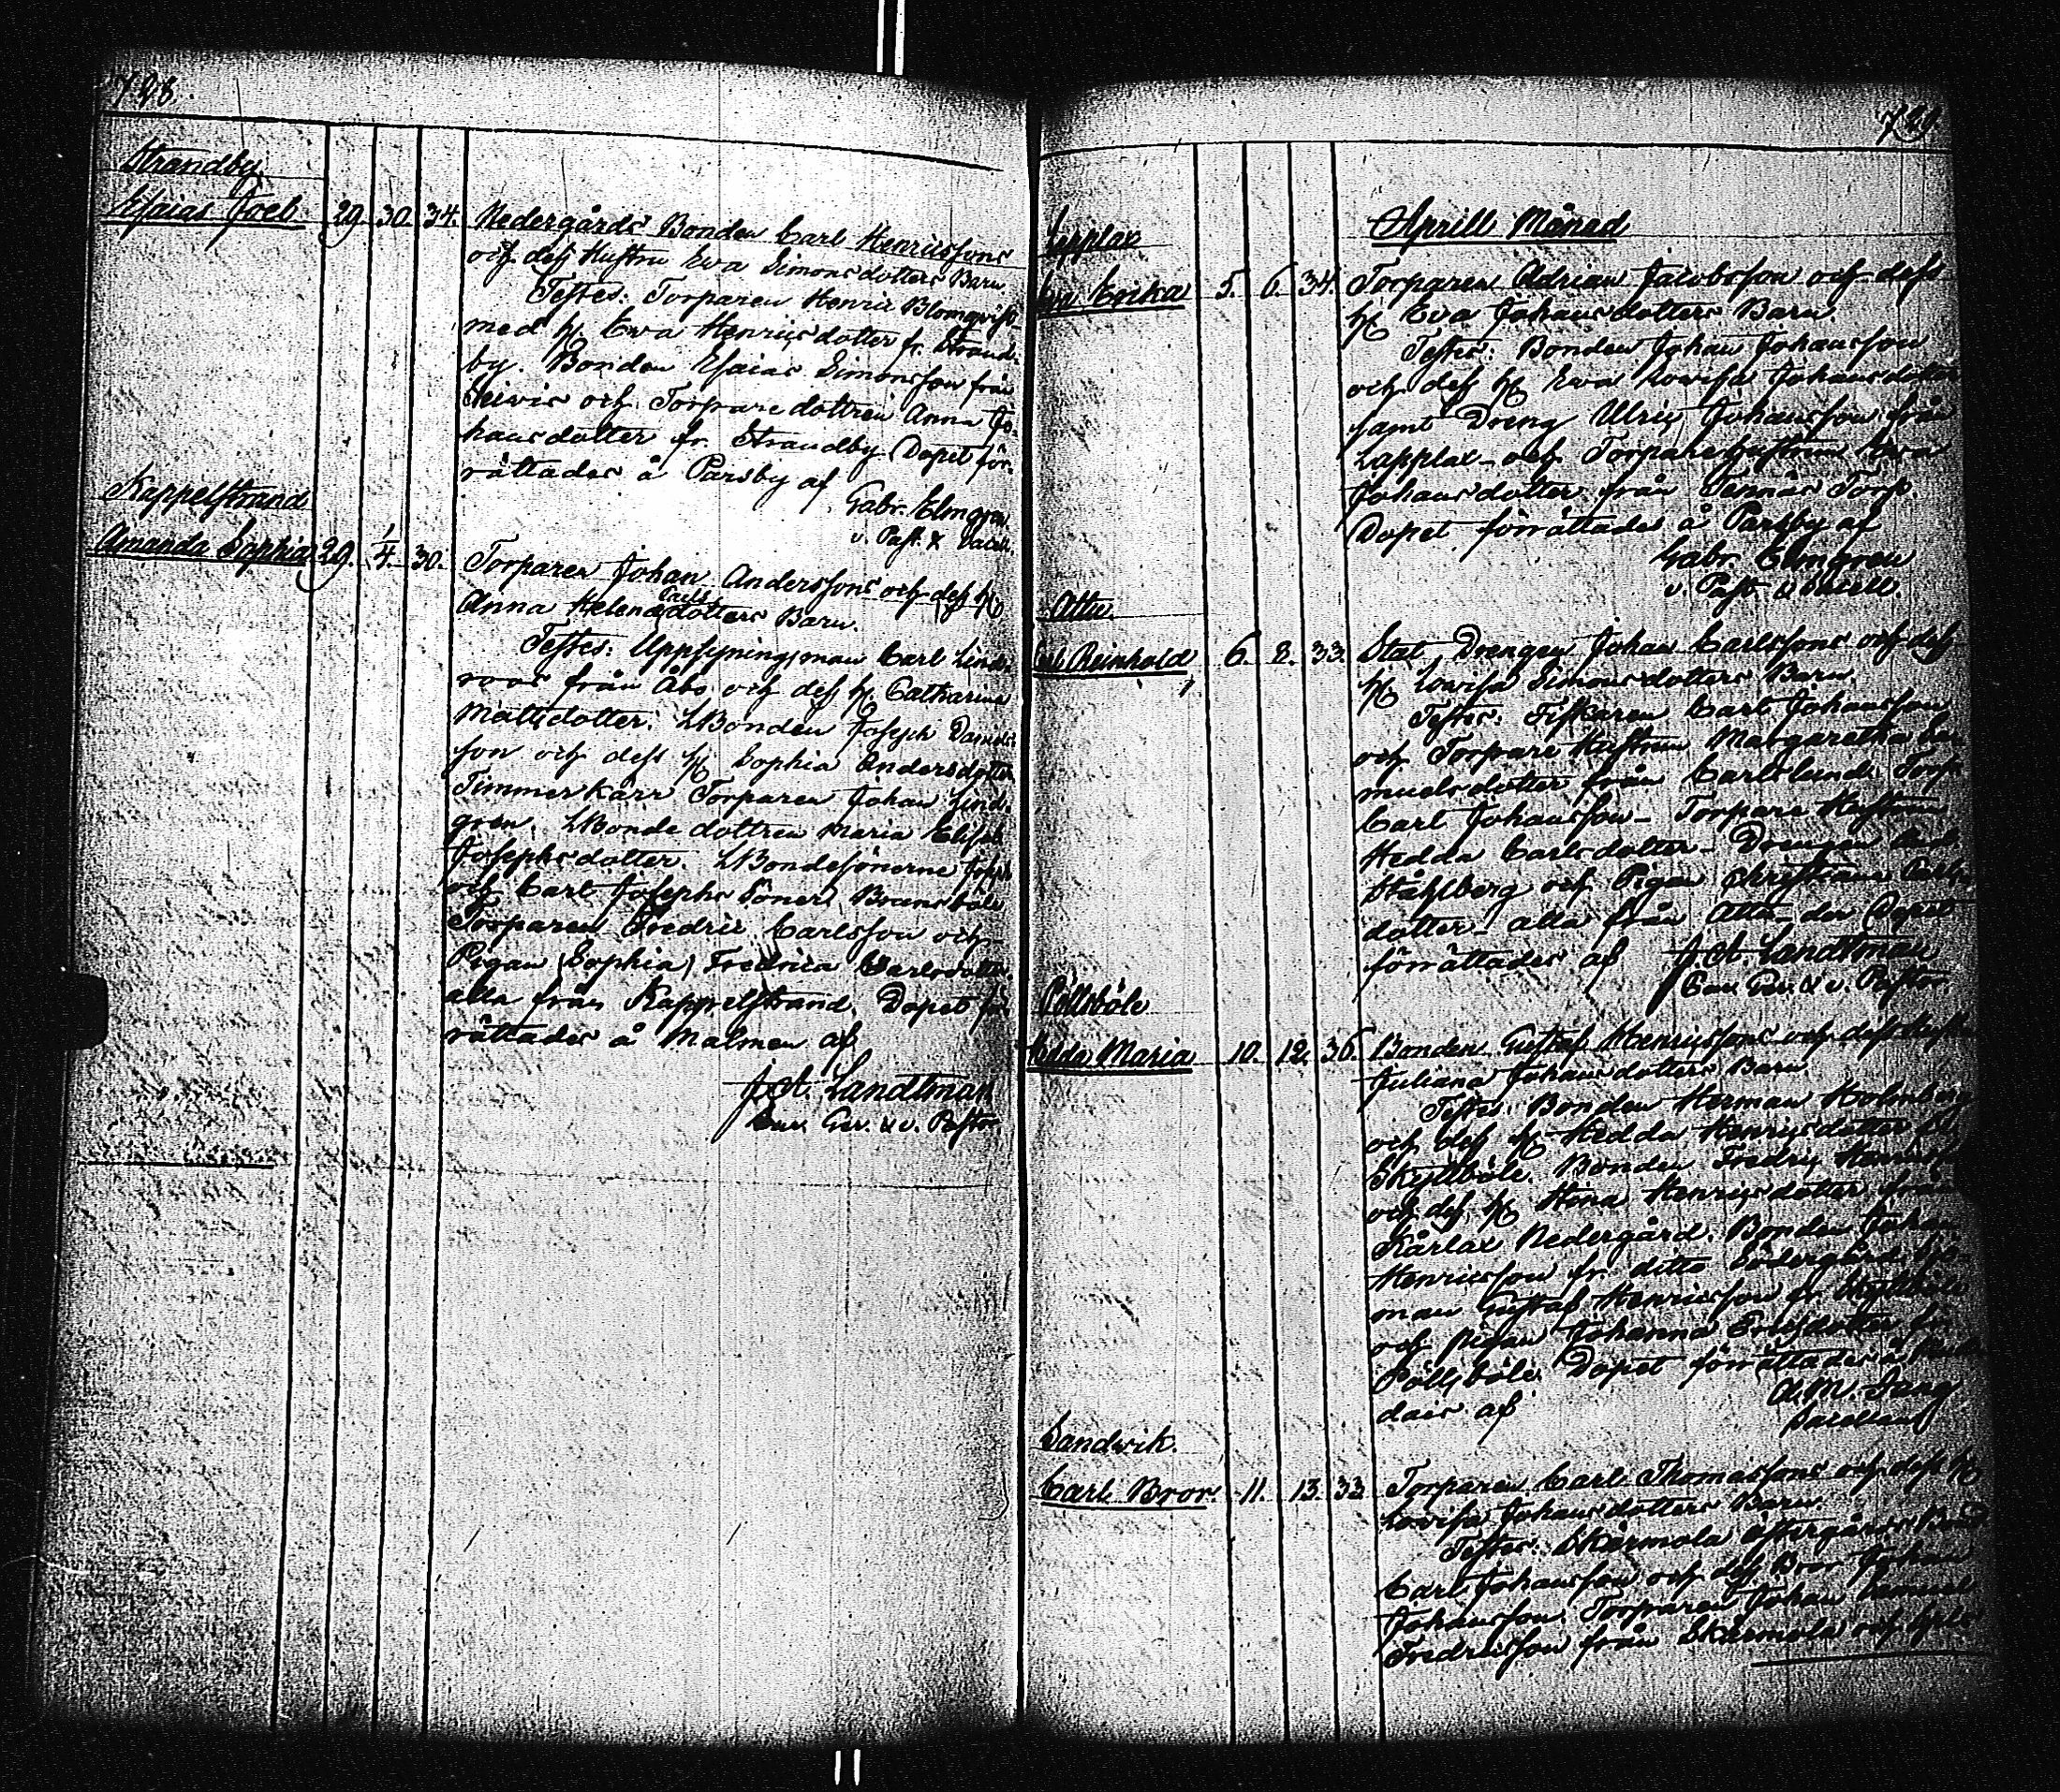 728.
Strandby
Esaias Joel. 29. 30. 34. Nedergårds Bonden Carl Henricssons
och dess Hustru Eva Simonsdotters Barn.
Testes: Torparen Henric Blomqvist
med H. Eva Henricsdotter fr. Strand-
by. Bonden Esaias Simonsson från
och Torparedottren Anna Jo-
hansdotter fr. Strandby. Dopet för-
rättades å Parsby af
Gabr. Elmgren
v. Past. &
Kappelstrand
Amanda Sophia 29. 1/4. 30. Torparen Johan Anderssons och dess H.
Anna Helena dotters Barn.
Testes: Uppsyningsman Carl Lind-
roos från Åbo och dess H. Catharina
Mattsdotter. LBonden Joseph Daniels-
son och dess H. Sophia Andersdotter
Timmerkärr Torparen Johan Lind-
gren. LBondedottren Maria Elisab.
Josephsdotter. LBondesönerne Joseph
och Carl Josephs Söner
Torparen Fredric Carlsson och
Pigan (Sophia) Fredrica Carlsdotter
alla från Kappelstrand. Dopet för-
rättades å Malmen af
J. A. Landtman
Cur. Ger. & v. Pastor
729
Aprill Månad
Lapplax
Eva Erika 5. 6. 34. Torparen Adrian Jacobsson och dess
H. Eva Johansdotters Barn.
Testes: Bonden Johan Johansson
och dess H. Ewa Lowisa Johansdotter
samt Dreng Ulric Johansson från
Lapplax och Torparehustrun
Johansdotter från Torp.
Dopet förrättades å Parsby af
Gabr. Elmgren
v. Past.
Attu.
Carl Reinhold 6. 8. 33. Stat Drengen Johan Carlssons och dess
H. Lowisa Simonsdotters Barn.
Testes: Fiskaren Carl Johansson
och Torpare Hustrun Margaretha Sa-
muelsdotter från Carlslunds Torp
Carl Johansson - Torpare Hustrun
Hedda Carlsdotter - Drengen
Ståhlberg och Pigan Christiana Carls-
dotter - alla från Attu - der Dopet
förrättades af J. A. Landtman
Cur. Ger. & v. Pastor.
Pöllsböle
Hedda Maria 10. 12. 36. Bonden Gustaf Henricssons och dess Hustru
Juliana Johansdotters Barn
Testes: Bonden Herman Holmberg
och dess H. Hedda Henricsdotter fr.
Skyttböle. Bonden Fredric Henricsson
och dess H. Henricsdotter från
Kårlax Nedergård. Bonden Johan
Henricsson fr. ditto Södergård.
man Gustaf Henricsson fr. Skyttböle
och pigan Johanna Ericsdotter fr.
Pöllsböle. Dopet förrättades å
dais af
Sandwik.
Carl Bror. 11. 13. 33. Torparen Carl Thomassons och dess H.
Lovisa Johansdotters Barn.
Testes: Skärmola
Carl Johansson och dess Bror Johan
Johansson. Torparen Johan Samuel
Fredricsson från Skärmola och